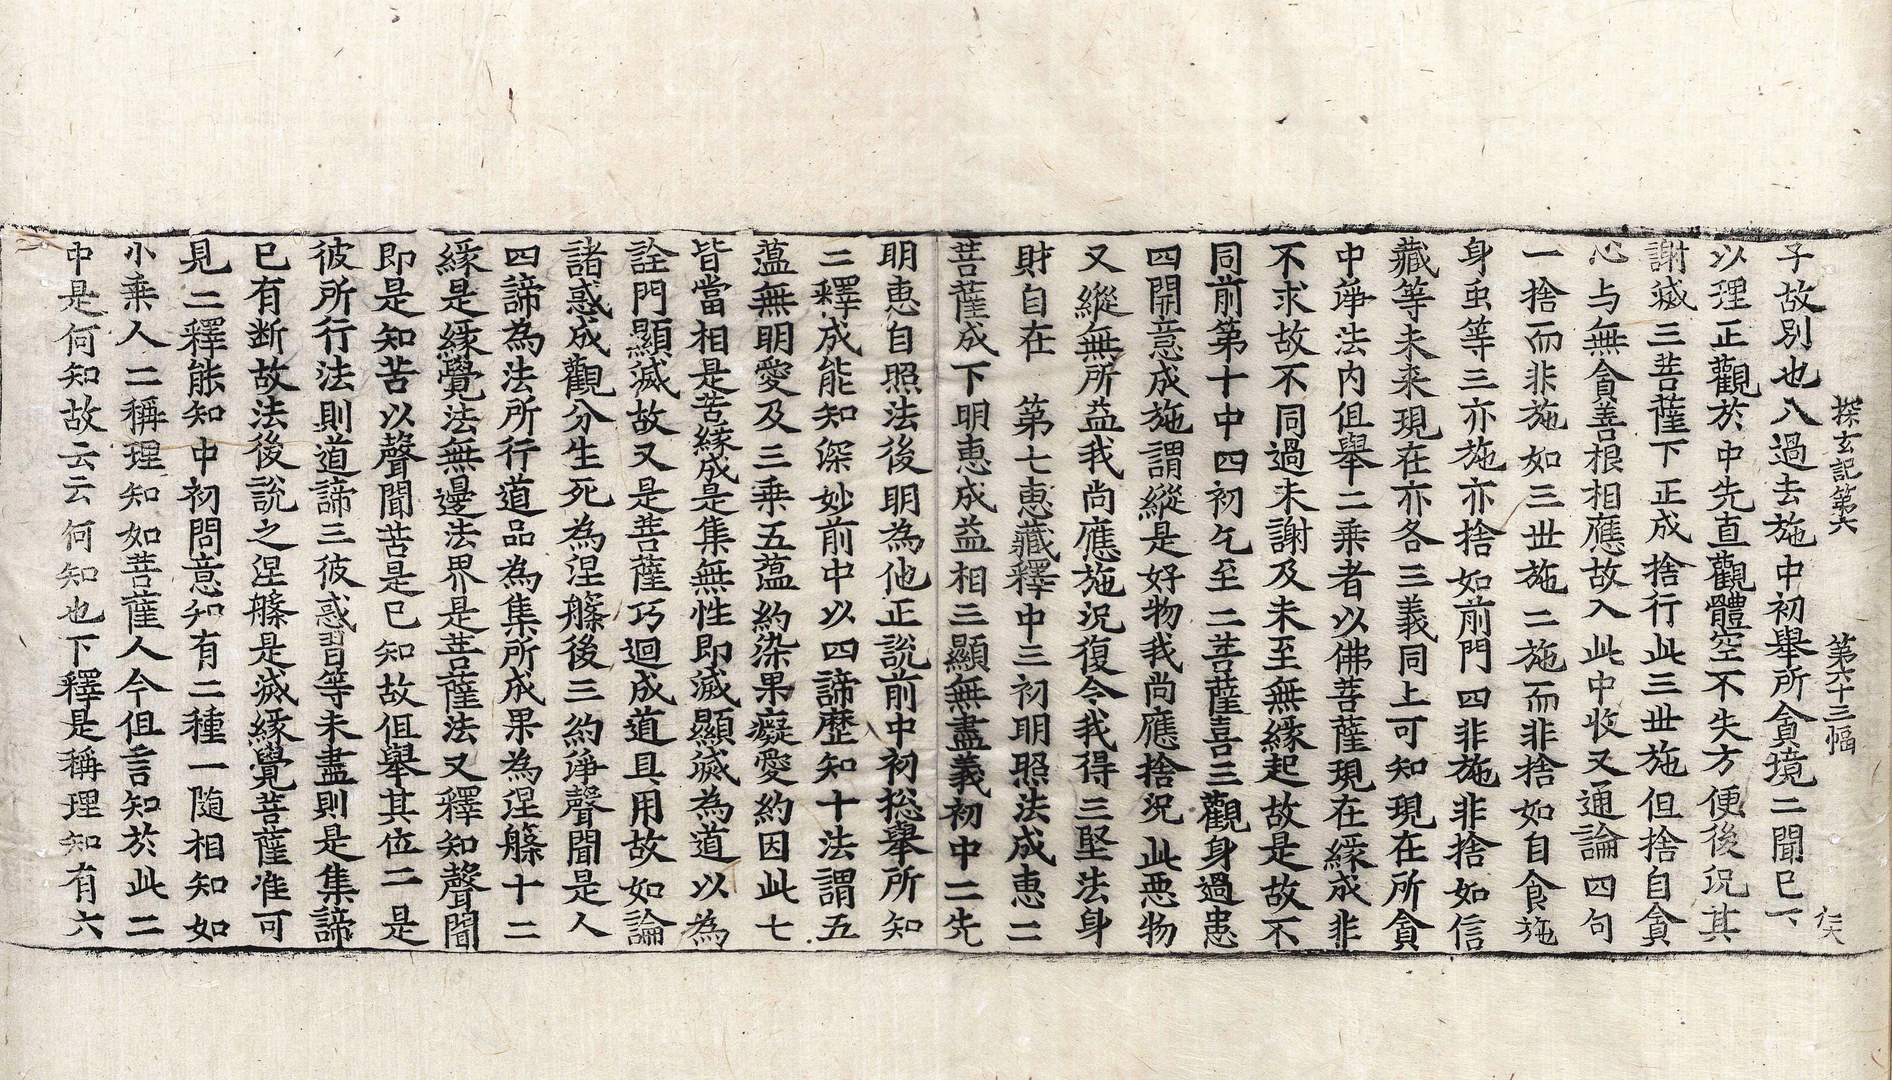 探玄記第六 第六十三幅 仁夫
子故別也八過去施中初舉所貪境二聞已下
以理正觀於中先直觀體空不失方便後況其
謝滅三菩薩下正成捨行此三世施但捨自貪
心与無貪善根相應故入此中收又通論四句
一捨而非施如三世施二施而非捨如自食施
身虫等三亦施亦捨如前門四非施非捨如信
藏等未來現在亦各三義同上可知現在所貪
中諍法内但舉二乘者以佛菩薩現在緣成非
不求故不同過未謝及未至無緣起故是故不
同前第十中四初乞至二菩薩喜三觀身過患
四開意成施謂縱是好物我尚應捨況此惡物
又縱無所益我尚應施況復令我得三堅法身
財自在 第七惠藏釋中三初明照法成惠二
菩薩成下明惠成益相三顯無盡義初中二先
明惠自照法後明為他正說前中初捴舉所知
二釋成能知深妙前中以四諦歷知十法謂五
薀無明愛及三乘五薀約染果癡愛約因此七
皆當相是苦緣成是集無性即滅顯滅為道以為
詮門顯滅故又是菩薩巧迴成道具用故如論
諸惑成觀分生死為涅槃後三約諍聲聞是人
四諦為法所行道品為集所成果為涅槃十二
緣是緣覺法無邊法界是菩薩法又釋知聲聞
即是知苦以聲聞苦是已知故但舉其位二是
彼所行法則道諦三彼惑習等未盡則是集諦
已有断故法後說之涅槃是滅緣覺菩薩准可
見二釋能知中初問意知有二種一隨相知如
小乘人二稱理知如菩薩人今但言知於此二
中是何知故云云何知也下釋是稱理知有六